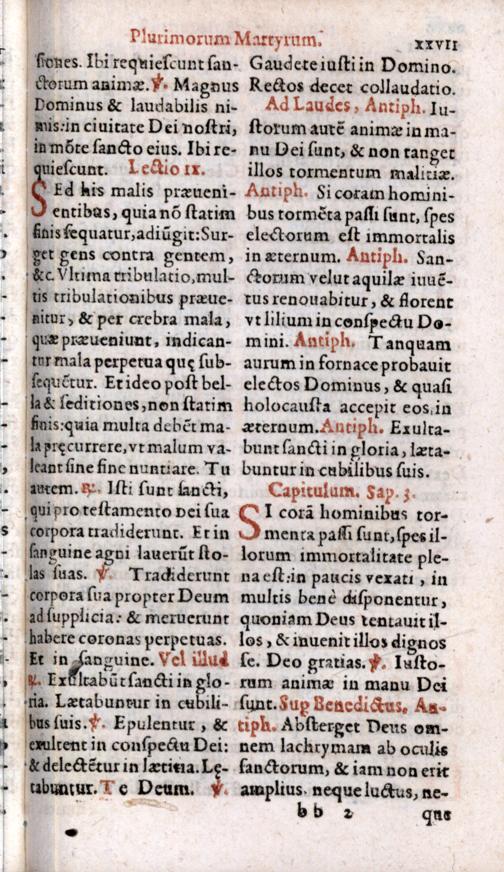 Plurimorum Martyrum.
xxvii
siones. Ibi requiescunt san-
ctorum animæ. ℣. Magnus
Dominus & laudabilis ni-
mis: in ciuitate Dei nostri,
in mõte sancto eius. Ibi re-
quiescunt. Lectio ix.
SEd his malis præueni-
entibus, quia nõ statim
finis sequatur, adiũgit: Sur-
get gens contra gentem,
&c. Vltima tribulatio, mul-
tis tribulationibus præue-
nitur, & per crebra mala,
quæ præueniunt, indican-
tur mala perpetua quę sub-
sequẽtur. Et ideo post bel-
la & seditiones, non statim
finis: quia multa debẽt ma-
la pręcurrere, vt malum va-
leant sine fine nuntiare. Tu
autem. ℟. Isti sunt sancti,
qui pro testamento Dei sua
corpora tradiderunt. Et in
sanguine agni lauerũt sto-
las suas. ℣. Tradiderunt
corpora sua propter Deum
ad supplicia: & meruerunt
habere coronas perpetuas.
Et in sanguine. Vel illud
℟. Exultabũt sancti in glo-
ria. Lætabuntur in cubili-
bus suis. ℣. Epulentur, &
exultent in conspectu Dei:
& delectẽtur in lætitia. Lę-
tabuntur. Te Deum. ℣.
Gaudete iusti in Domino.
Rectos decet collaudatio.
Ad Laudes, Antiph. Iu-
storum autẽ animæ in ma-
nu Dei sunt, & non tanget
illos tormentum malitiæ.
Antiph. Si coram homini-
bus tormẽta passi sunt, spes
electorum est immortalis
in æternum. Antiph. San-
ctorum velut aquilæ iuuẽ-
tus renouabitur, & florent
vt lilium in conspectu Do-
mini. Antiph. Tanquam
aurum in fornace probauit
electos Dominus, & quasi
holocausta accepit eos, in
æternum. Antiph. Exulta-
bunt sancti in gloria, læta-
buntur in cubilibus suis.
Capitulum. Sap. 3.
SI corã hominibus tor-
menta passi sunt, spes il-
lorum immortalitate ple-
na est: in paucis vexati, in
multis benè disponentur,
quoniam Deus tentauit il-
los, & inuenit illos dignos
se. Deo gratias. ℣. Iusto-
rum animæ in manu Dei
sunt. Sup Benedictus, An-
tiph. Absterget Deus om-
nem lachrymam ab oculis
sanctorum, & iam non erit
amplius, neque luctus, ne-
bb 2
que